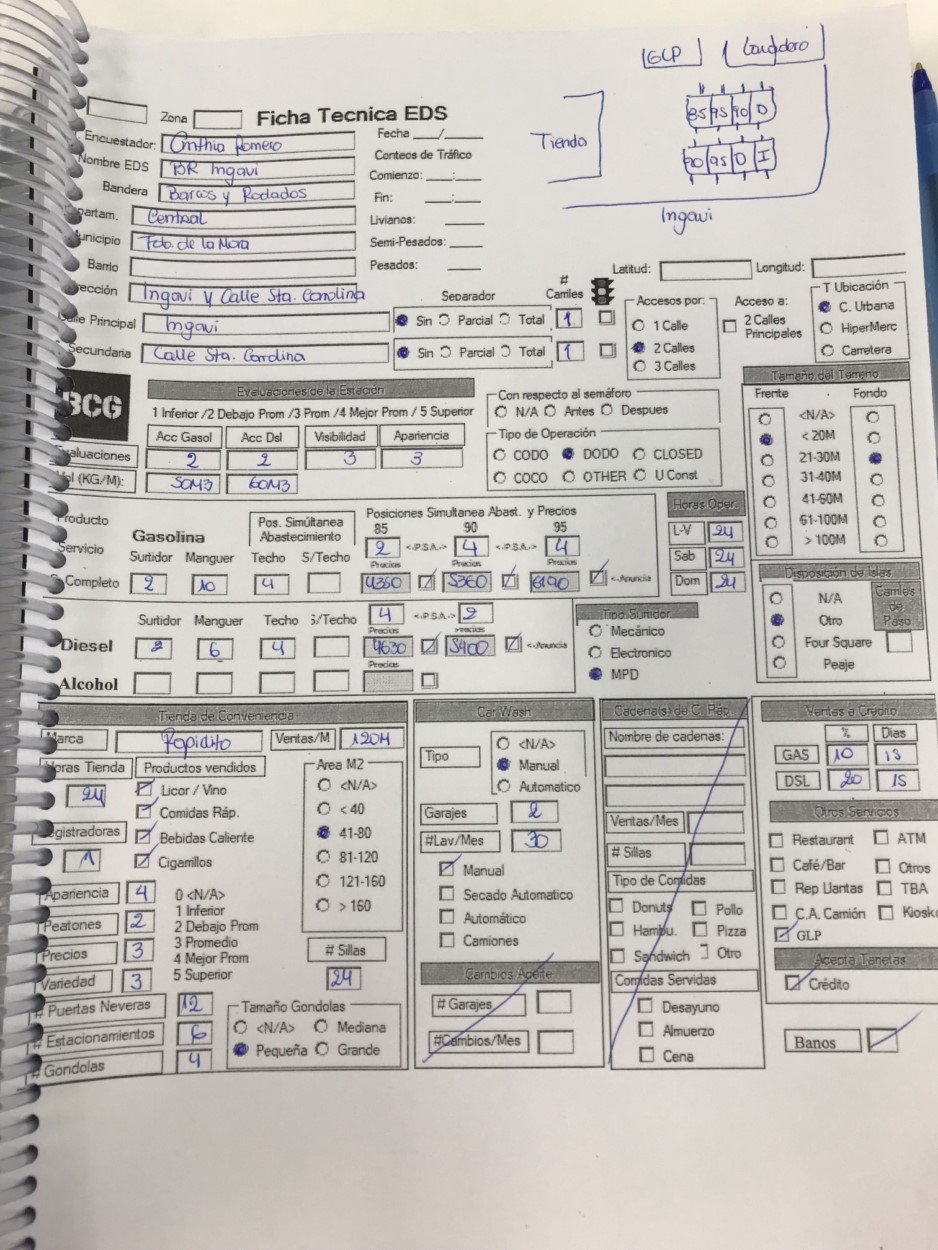 GLP Lavadero
Zona
Ficha Tecnica EDS
85 95 90 D
Tienda
90 95 D I
Ingavi
Encuestador: Cinthia Romero
Fecha ___/___
Nombre EDS BR Ingavi
Conteos de Tráfico
Bandera Barcos y Rodados
Comienzo: ___:___
Fin: ___:___
Departam. Central
Livianos: ____
Municipio Fdo. de la Mora
Semi-Pesados: ____
Barrio
Pesados: ____
Latitud: Longitud:
Dirección Ingavi y Calle Sta. Carolina
Separador # Carriles
Calle Principal Ingavi Sin Parcial Total 1
Secundaria Calle Sta. Carolina Sin Parcial Total 1
Accesos por:
1 Calle
2 Calles
3 Calles
Acceso a:
2 Calles Principales
T Ubicación
C. Urbana
HiperMerc
Carretera
BCG
Evaluaciones de la Estación
1 Inferior /2 Debajo Prom /3 Prom /4 Mejor Prom / 5 Superior
Acc Gasol Acc Dsl Visibilidad Apariencia
Evaluaciones 2 2 3 3
Vol (KG/M): 50M3 60M3
Con respecto al semáforo
N/A Antes Despues
Tipo de Operación
CODO DODO CLOSED
COCO OTHER U Const
Tamaño del Terreno
Frente Fondo
<N/A>
< 20M
21-30M
31-40M
41-60M
61-100M
> 100M
Producto
Servicio
Gasolina
Pos. Simúltanea Abastecimiento
Posiciones Simultanea Abast. y Precios
85 90 95
2 <-P.S.A.-> 4 <-P.S.A.-> 4
Surtidor Manguer Techo S/Techo Precios Precios Precios
Completo 2 10 4 4350 5360 6190 <-Anuncia
Horas Oper.
L-V 24
Sab 24
Dom 24
Surtidor Manguer Techo S/Techo 4 <-P.S.A.-> 2
Precios Precios
Diesel 2 6 4 4630 5400 <-Anuncia
Precios
Alcohol
Tipo Surtidor
Mecánico
Electronico
MPD
Disposición de Islas
N/A
Otro
Four Square
Peaje
Carriles de Paso
Tienda de Conveniencia
Marca Rapidito Ventas/M 120M
Horas Tienda Productos vendidos
24
Licor / Vino
Comidas Ráp.
Registradoras
Bebidas Caliente
1 Cigarrillos
Area M2
<N/A>
< 40
41-80
81-120
121-160
> 160
Apariencia 4
Peatones 2
Precios 3
Variedad 3
0 <N/A>
1 Inferior
2 Debajo Prom
3 Promedio
4 Mejor Prom
5 Superior
# Sillas
24
# Puertas Neveras 12
# Estacionamientos 6
# Gondolas 4
Tamaño Gondolas
<N/A> Mediana
Pequeña Grande
Car Wash
Tipo
<N/A>
Manual
Automatico
Garajes 2
#Lav/Mes 30
Manual
Secado Automatico
Automático
Camiones
Cambios Aceite
# Garajes
#Cambios/Mes
Cadena(s) de C. Ráp.
Nombre de cadenas:
Ventas/Mes
# Sillas
Tipo de Comidas
Donuts Pollo
Hambu. Pizza
Sandwich Otro
Comidas Servidas
Desayuno
Almuerzo
Cena
Ventas a Crédito
% Dias
GAS 10 15
DSL 20 15
Otros Servicios
Restaurant ATM
Café/Bar Otros
Rep Llantas TBA
C.A. Camión Kiosko
GLP
Acepta Tarjetas
Crédito
Banos